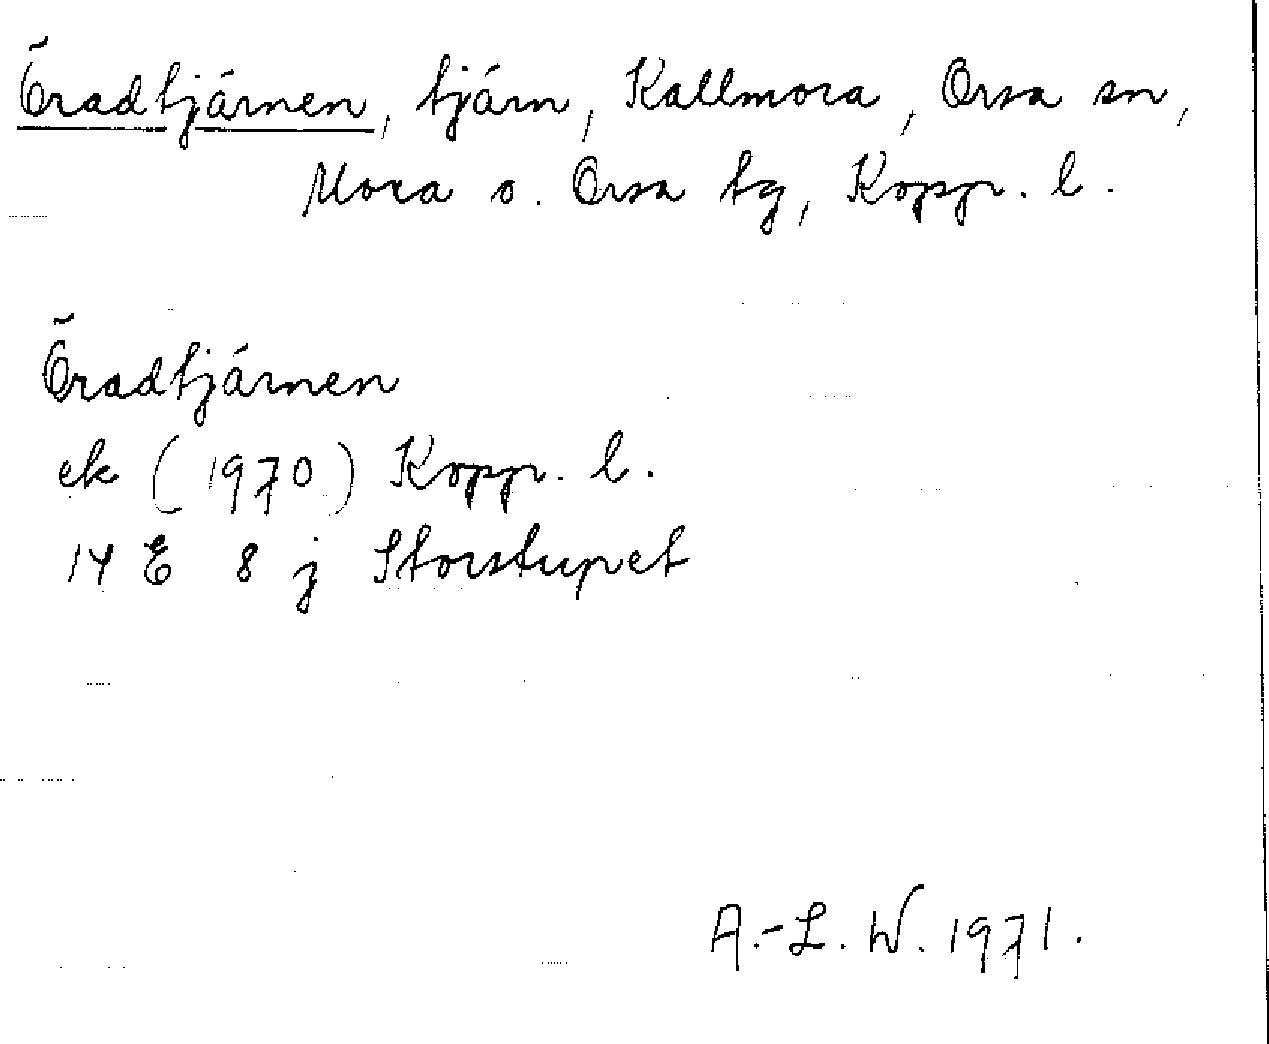 Öradtjärnen, tjärn, Kallmora, Orsa sn,
Mora o. Orsa tg, Kopp. l.
Öradtjärnen
ek (1970) Kopp. l.
14 E 8 j Storstupet
A.-L. W. 1971.